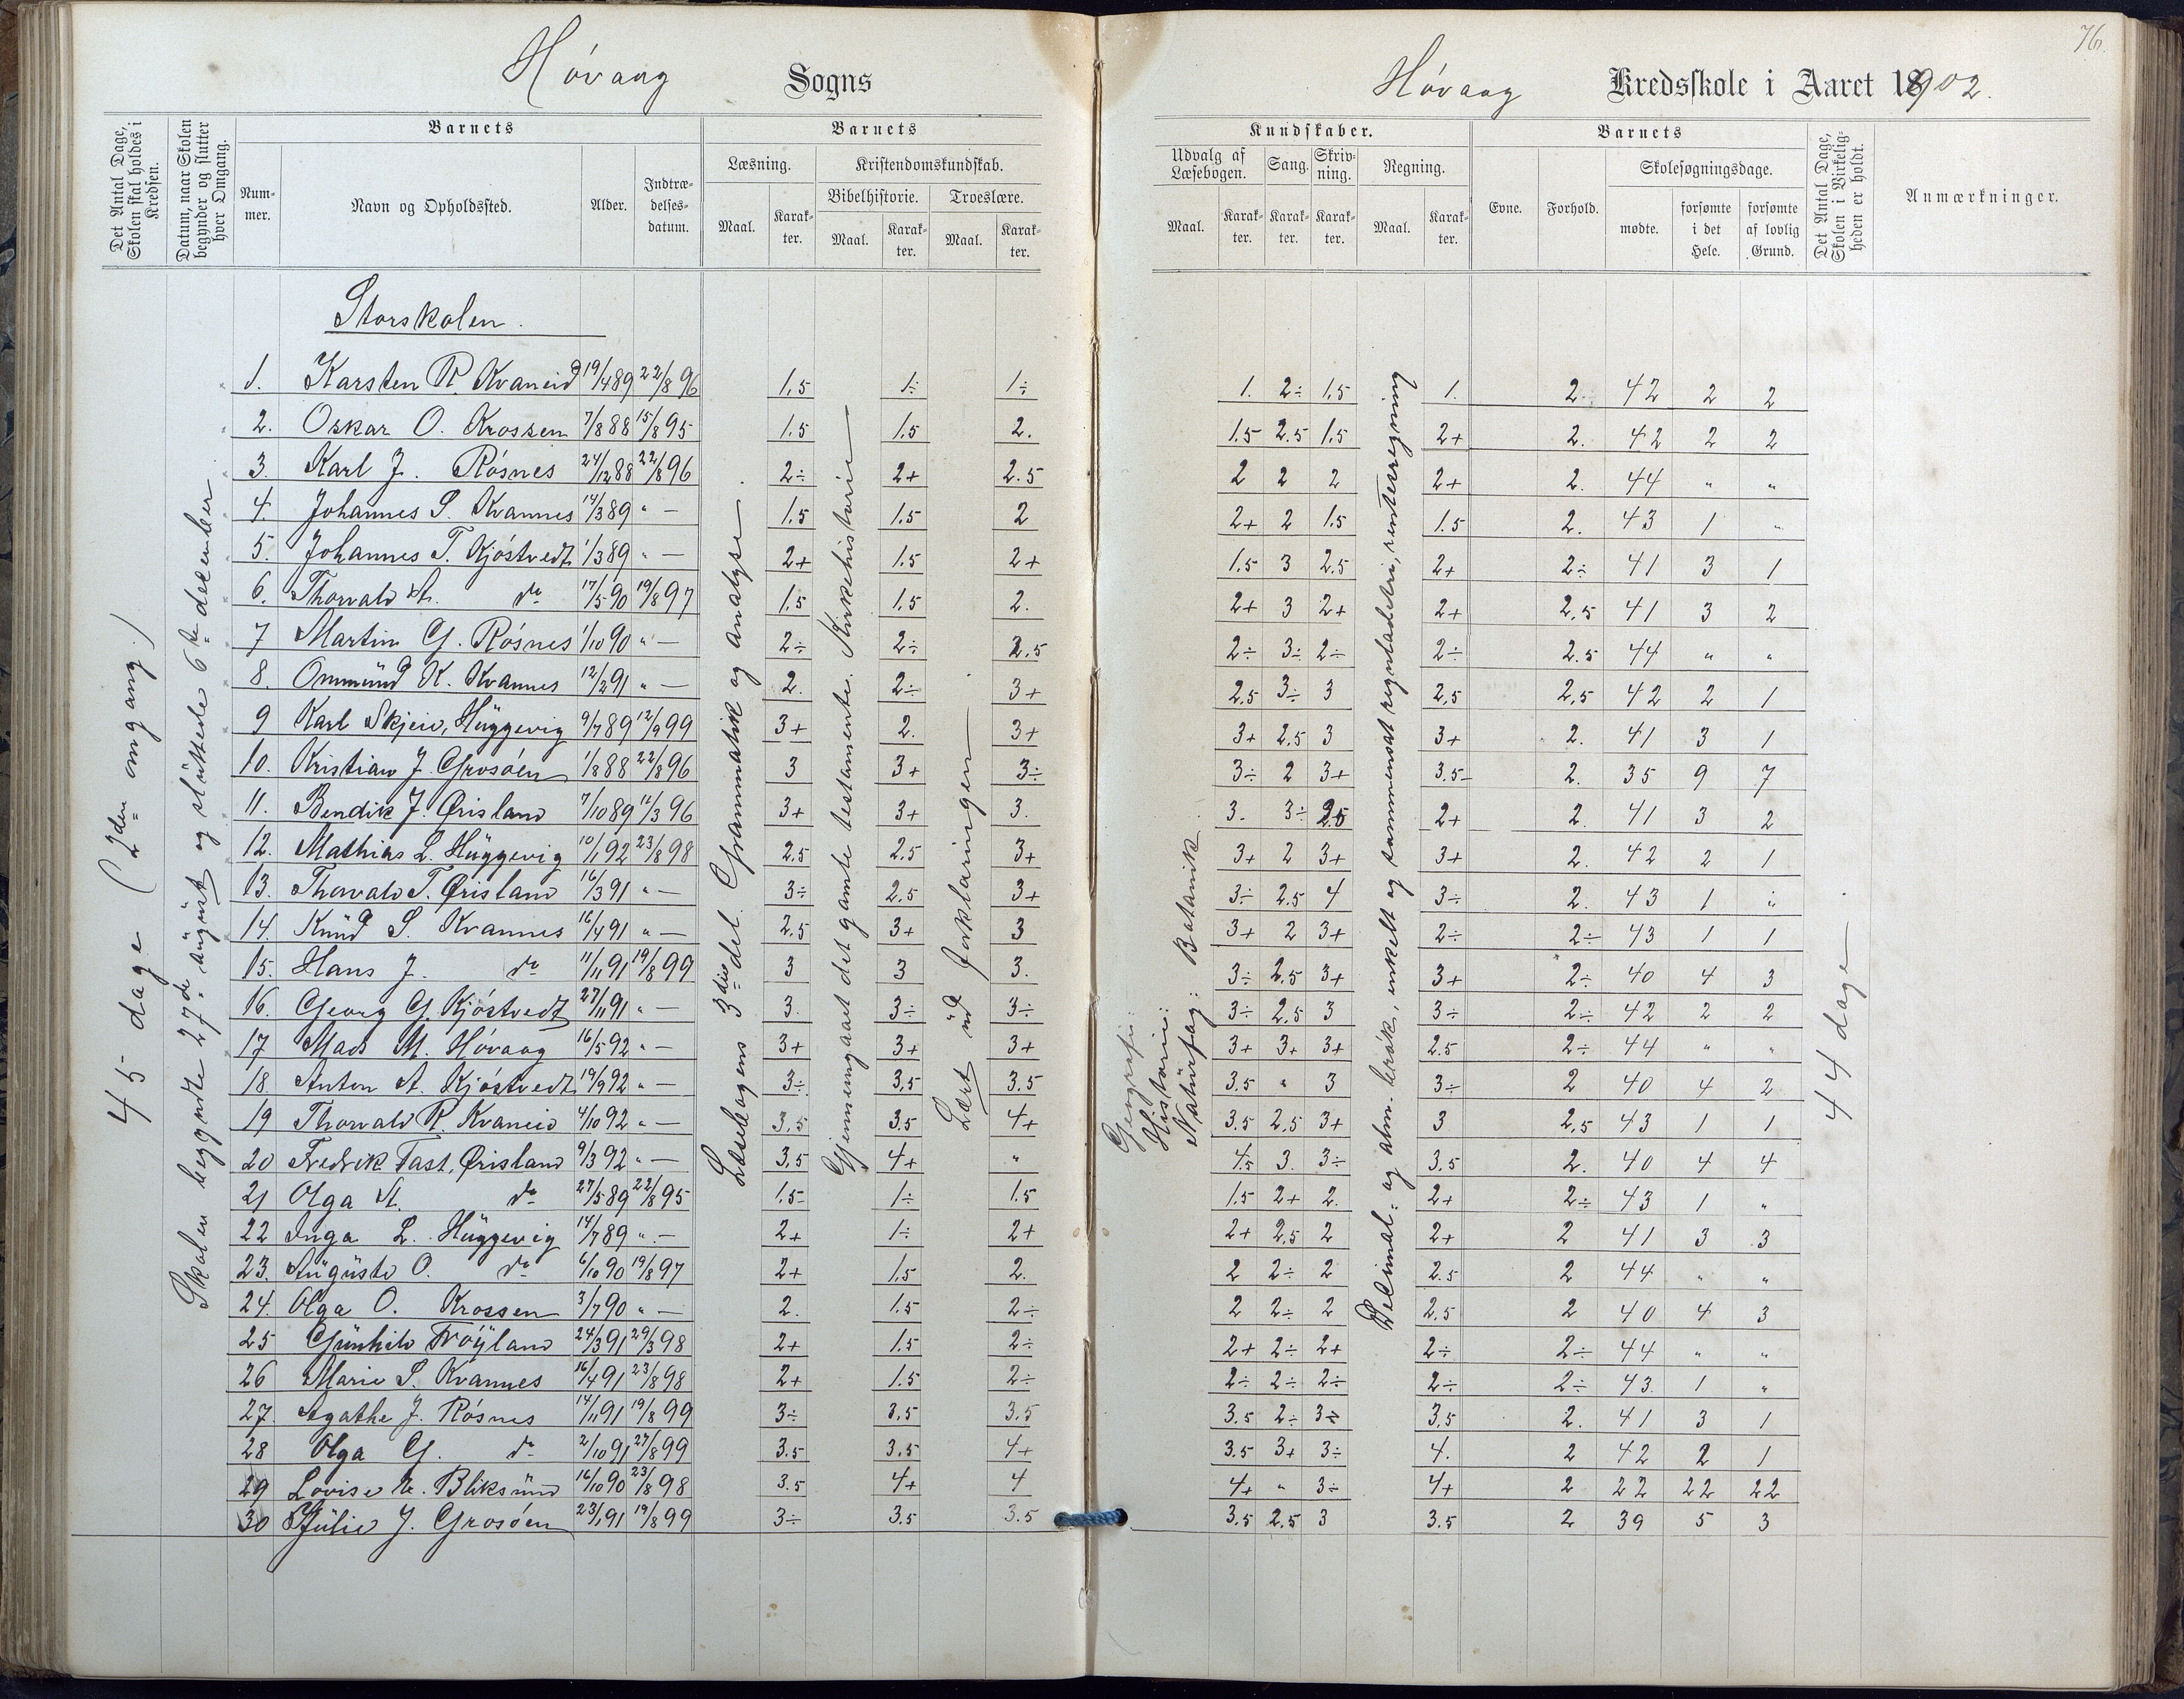 76.
Høvaag Sogns
Høvaag Kredsskole i Aaret 1902.
Det Antal Dage, Skolen skal holdes i Kredsen.
Datum, naar Skolen begynder og slutter hver Omgang.
Barnets
Nummer.
Navn og Opholdssted.
Alder.
Indtrædelsesdatum.
Barnets
Læsning.
Kristendomskundskab.
Bibelhistorie.
Troeslære.
Maal. Karakter. Maal. Karakter. Maal. Karakter.
Kundskaber.
Udvalg af Læsebogen.
Sang.
Skrivning.
Regning.
Maal. Karakter. Karakter. Karakter. Maal. Karakter.
Barnets
Evne.
Forhold.
Skolesøgningsdage.
mødte.
forsømte i det Hele.
forsømte af lovlig Grund.
Det Antal Dage, Skolen i Virkeligheden er holdt.
Anmærkninger.
45 dage (2den omgang.)
Skolen begyndte 27de august og sluttede 6te december.
Læsebogens 3die del. Grammatik og analyse.
Gjennemgaaet det gamle testamente. Kirkehistorie
Lært ud forklaringen
Geografi:
Historie:
Naturfag: Botanik.
Decimal- og alm. brøk, enkelt og sammensat reguladetri, renteregning
44 dage.
Storskolen.
1. Karsten R. Kvaneid 19/4 89 22/8 96 1,5 1÷ 1÷ 1. 2÷ 1,5 1. 2 42 2 2
2. Oskar O. Krossen 7/8 88 15/8 95 1.5 1.5 2. 1.5 2.5 1.5 2+ 2. 42 2 2
3. Karl J. Røsnes 24/12 88 22/8 96 2÷ 2+ 2.5 2 2 2 2+ 2. 44 " "
4. Johannes S. Kvannes 14/3 89 " — 1.5 1.5 2 2+ 2 1.5 1.5 2. 43 1 "
5. Johannes T. Kjøstvedt 1/3 89 " — 2+ 1.5 2+ 1.5 3 2.5 2+ 2÷ 41 3 1
6. Thorvald A. do 17/5 90 19/8 97 1.5 1.5 2. 2+ 3 2+ 2+ 2,5 41 3 2
7 Martin G. Røsnes 1/10 90 " — 2÷ 2÷ 2.5 2÷ 3÷ 2÷ 2÷ 2.5 44 " "
8. Ommund K. Kvannes 12/2 91 " — 2. 2÷ 3+ 2,5 3÷ 3 2,5 2,5 42 2 1
9 Karl Skjeie, Huggevig 9/7 89 12/9 99 3+ 2. 3+ 3+ 2.5 3 3+ 2. 41 3 1
10. Kristian J. Grosøen 1/8 88 22/8 96 3 3+ 3÷ 3÷ 2 3+ 3.5 2. 35 9 7
11. Bendik J. Ørisland 7/10 89 12/3 96 3+ 3+ 3. 3. 3÷ 2.5 2+ 2. 41 3 2
12. Mathias L. Huggevig 10/1 92 23/8 98 2.5 2.5 3+ 3+ 2 3+ 3+ 2. 42 2 1
13. Thorvald T. Ørisland 16/3 91 " — 3÷ 2.5 3+ 3÷ 2.5 4 3÷ 2. 43 1 "
14. Knud S. Kvannes 16/4 91 " — 2.5 3+ 3 3+ 2 3+ 2÷ 2÷ 43 1 1
15. Hans J. do 11/11 91 19/8 99 3 3 3. 3÷ 2.5 3+ 3+ 2÷ 40 4 3
16. Georg G. Kjøstvedt 27/11 91 " — 3. 3÷ 3÷ 3÷ 2.5 3 3÷ 2÷ 42 2 2
17 Mads M. Høvaag 16/5 92 " — 3+ 3+ 3+ 3+ 3+ 3+ 2.5 2÷ 44 " "
18 Anton A. Kjøstvedt 19/9 92 " — 3÷ 3,5 3.5 3.5 " 3 3÷ 2 40 4 2
19 Thorvald R. Kvaneid 4/10 92 " — 3,5 3.5 4+ 3.5 2.5 3+ 3 2,5 43 1 1
20 Fredrik Tast, Ørisland 9/3 92 " — 3,5 4+ " 4.5 3. 3÷ 3.5 2. 40 4 4
21 Olga A. do 27/5 89 22/8 95 1.5 1÷ 1.5 1.5 2+ 2. 2+ 2÷ 43 1 "
22 Inga L. Huggevig 14/7 89 " — 2+ 1÷ 2+ 2+ 2,5 2 2+ 2 41 3 3
23. Auguste O. do 6/10 90 19/8 97 2+ 1,5 2. 2 2÷ 2 2.5 2 44 " "
24. Olga O. Krossen 3/7 90 " — 2. 1.5 2÷ 2 2÷ 2 2,5 2 40 4 3
25 Gunhild Trøyland 24/3 91 29/3 98 2+ 1.5 2÷ 2+ 2÷ 2+ 2÷ 2÷ 44 " "
26 Marie S. Kvannes 16/4 91 23/8 98 2+ 1.5 2÷ 2÷ 2÷ 2÷ 2÷ 2÷ 43. 1 "
27. Agathe J. Røsnes 14/11 91 19/8 99 3÷ 3,5 3,5 3.5 2÷ 3÷ 3,5 2. 41 3 1
28 Olga G. do 2/10 91 27/8 99 3.5 3.5 4+ 3.5 3+ 3÷ 4. 2 42 2 1
29 Lovise Bliksund 16/10 90 23/8 98 3.5 4+ 4 4+ " 3÷ 4+ 2 22 22 22
30 Julie J. Grosøen 23/1 91 19/8 99 3÷ 3.5 3.5 3.5 2.5 3 3.5 2 39 5 3